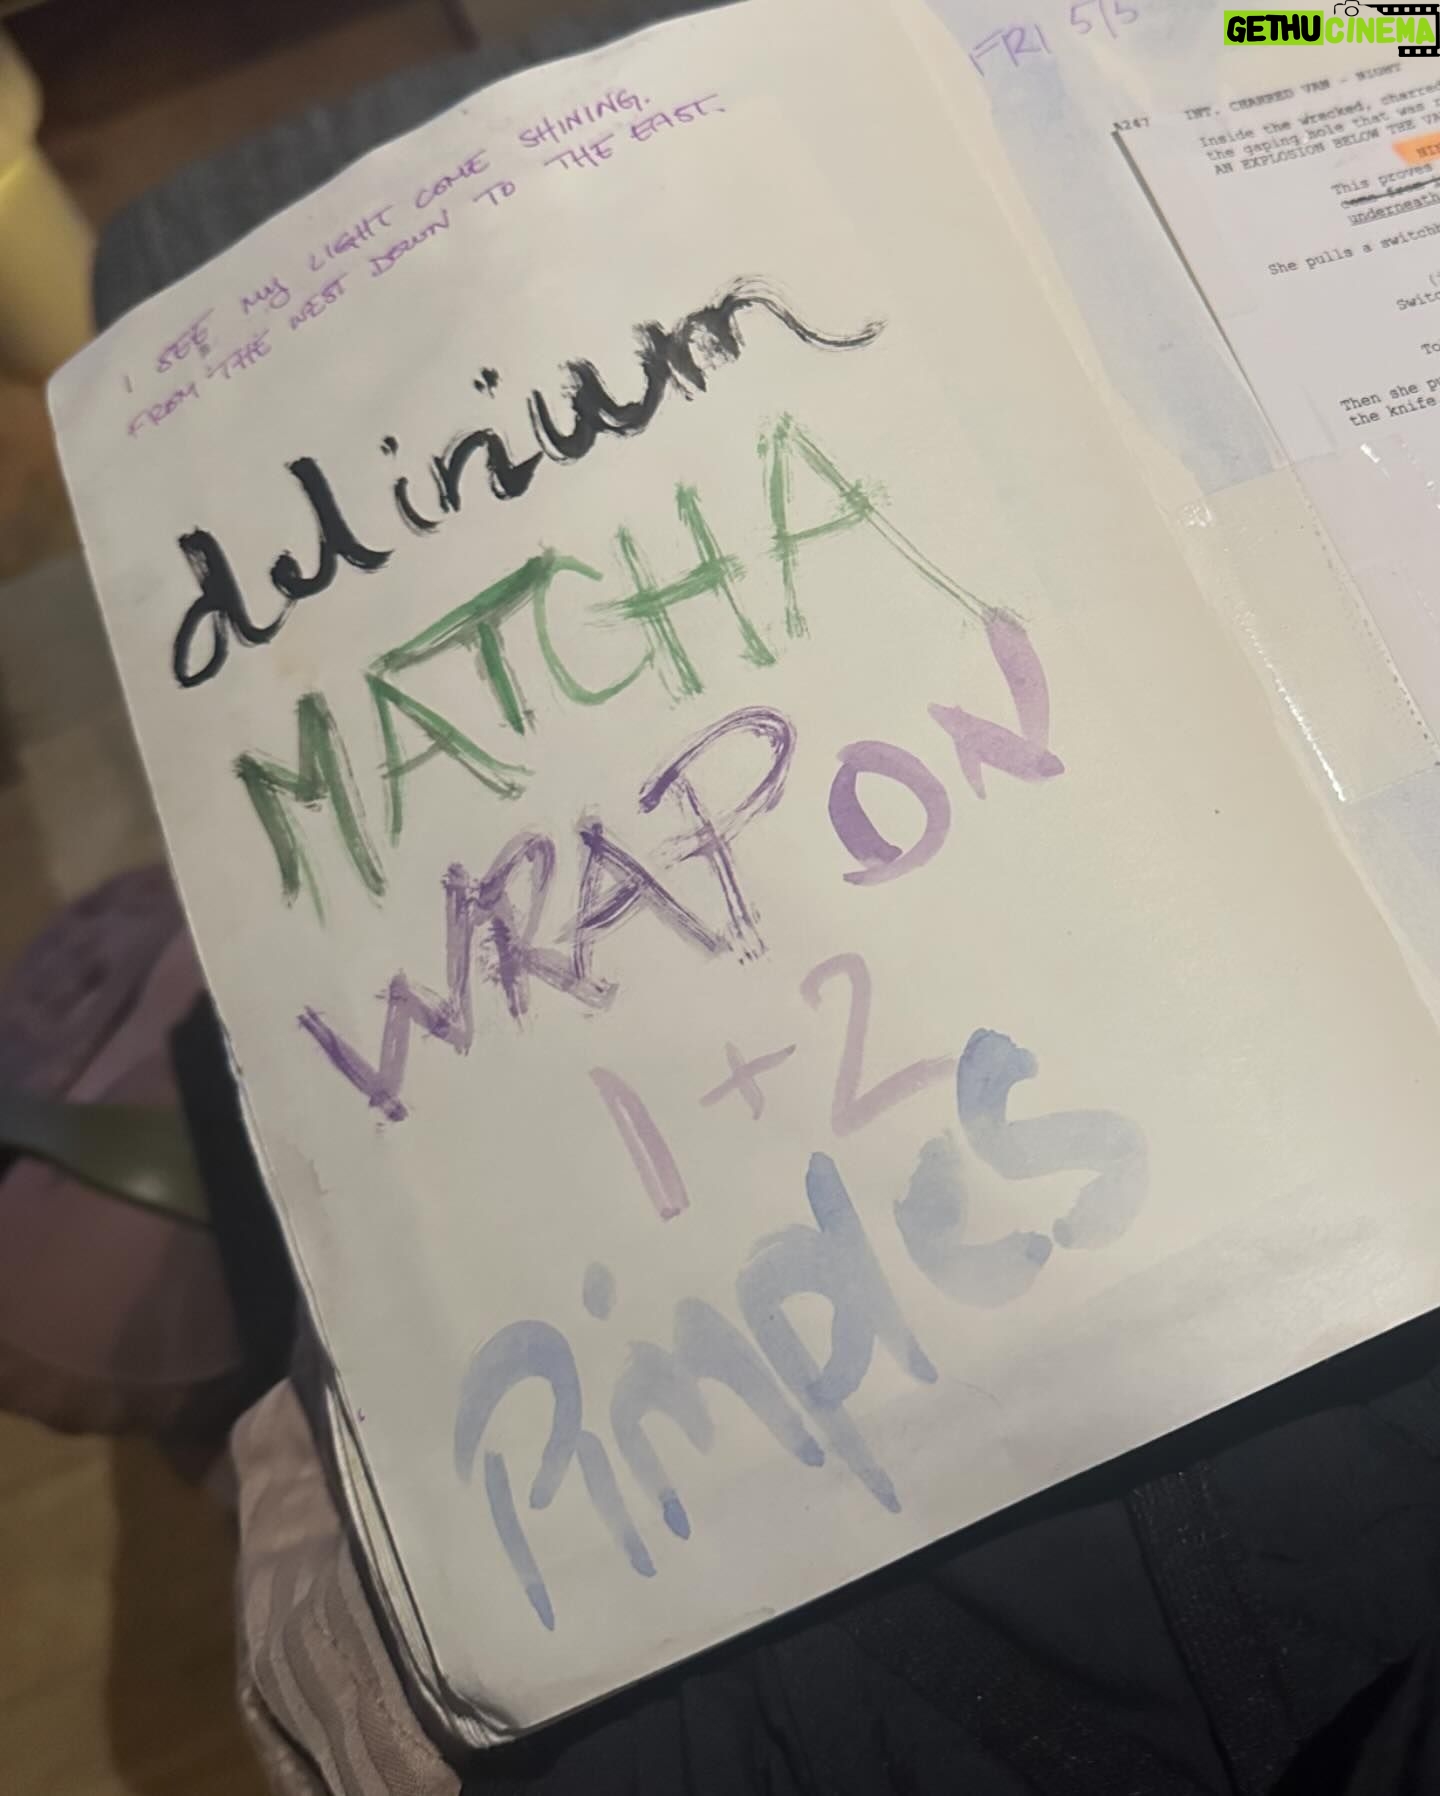 GETHUCINEMA
I SEE MY LIGHT COME SHINING.
FROM THE WEST DOWN TO THE EAST.
delirium
MATCHA
WRAP ON
1+2
Pimples
FRI 5/5
A247 INT. CHARRED VAN - NIGHT
Inside the wrecked, charred
the gaping hole that was
AN EXPLOSION BELOW THE VA
NIN
This proves
come from
underneath
She pulls a switchb
Switc
To
Then she pu
the knife